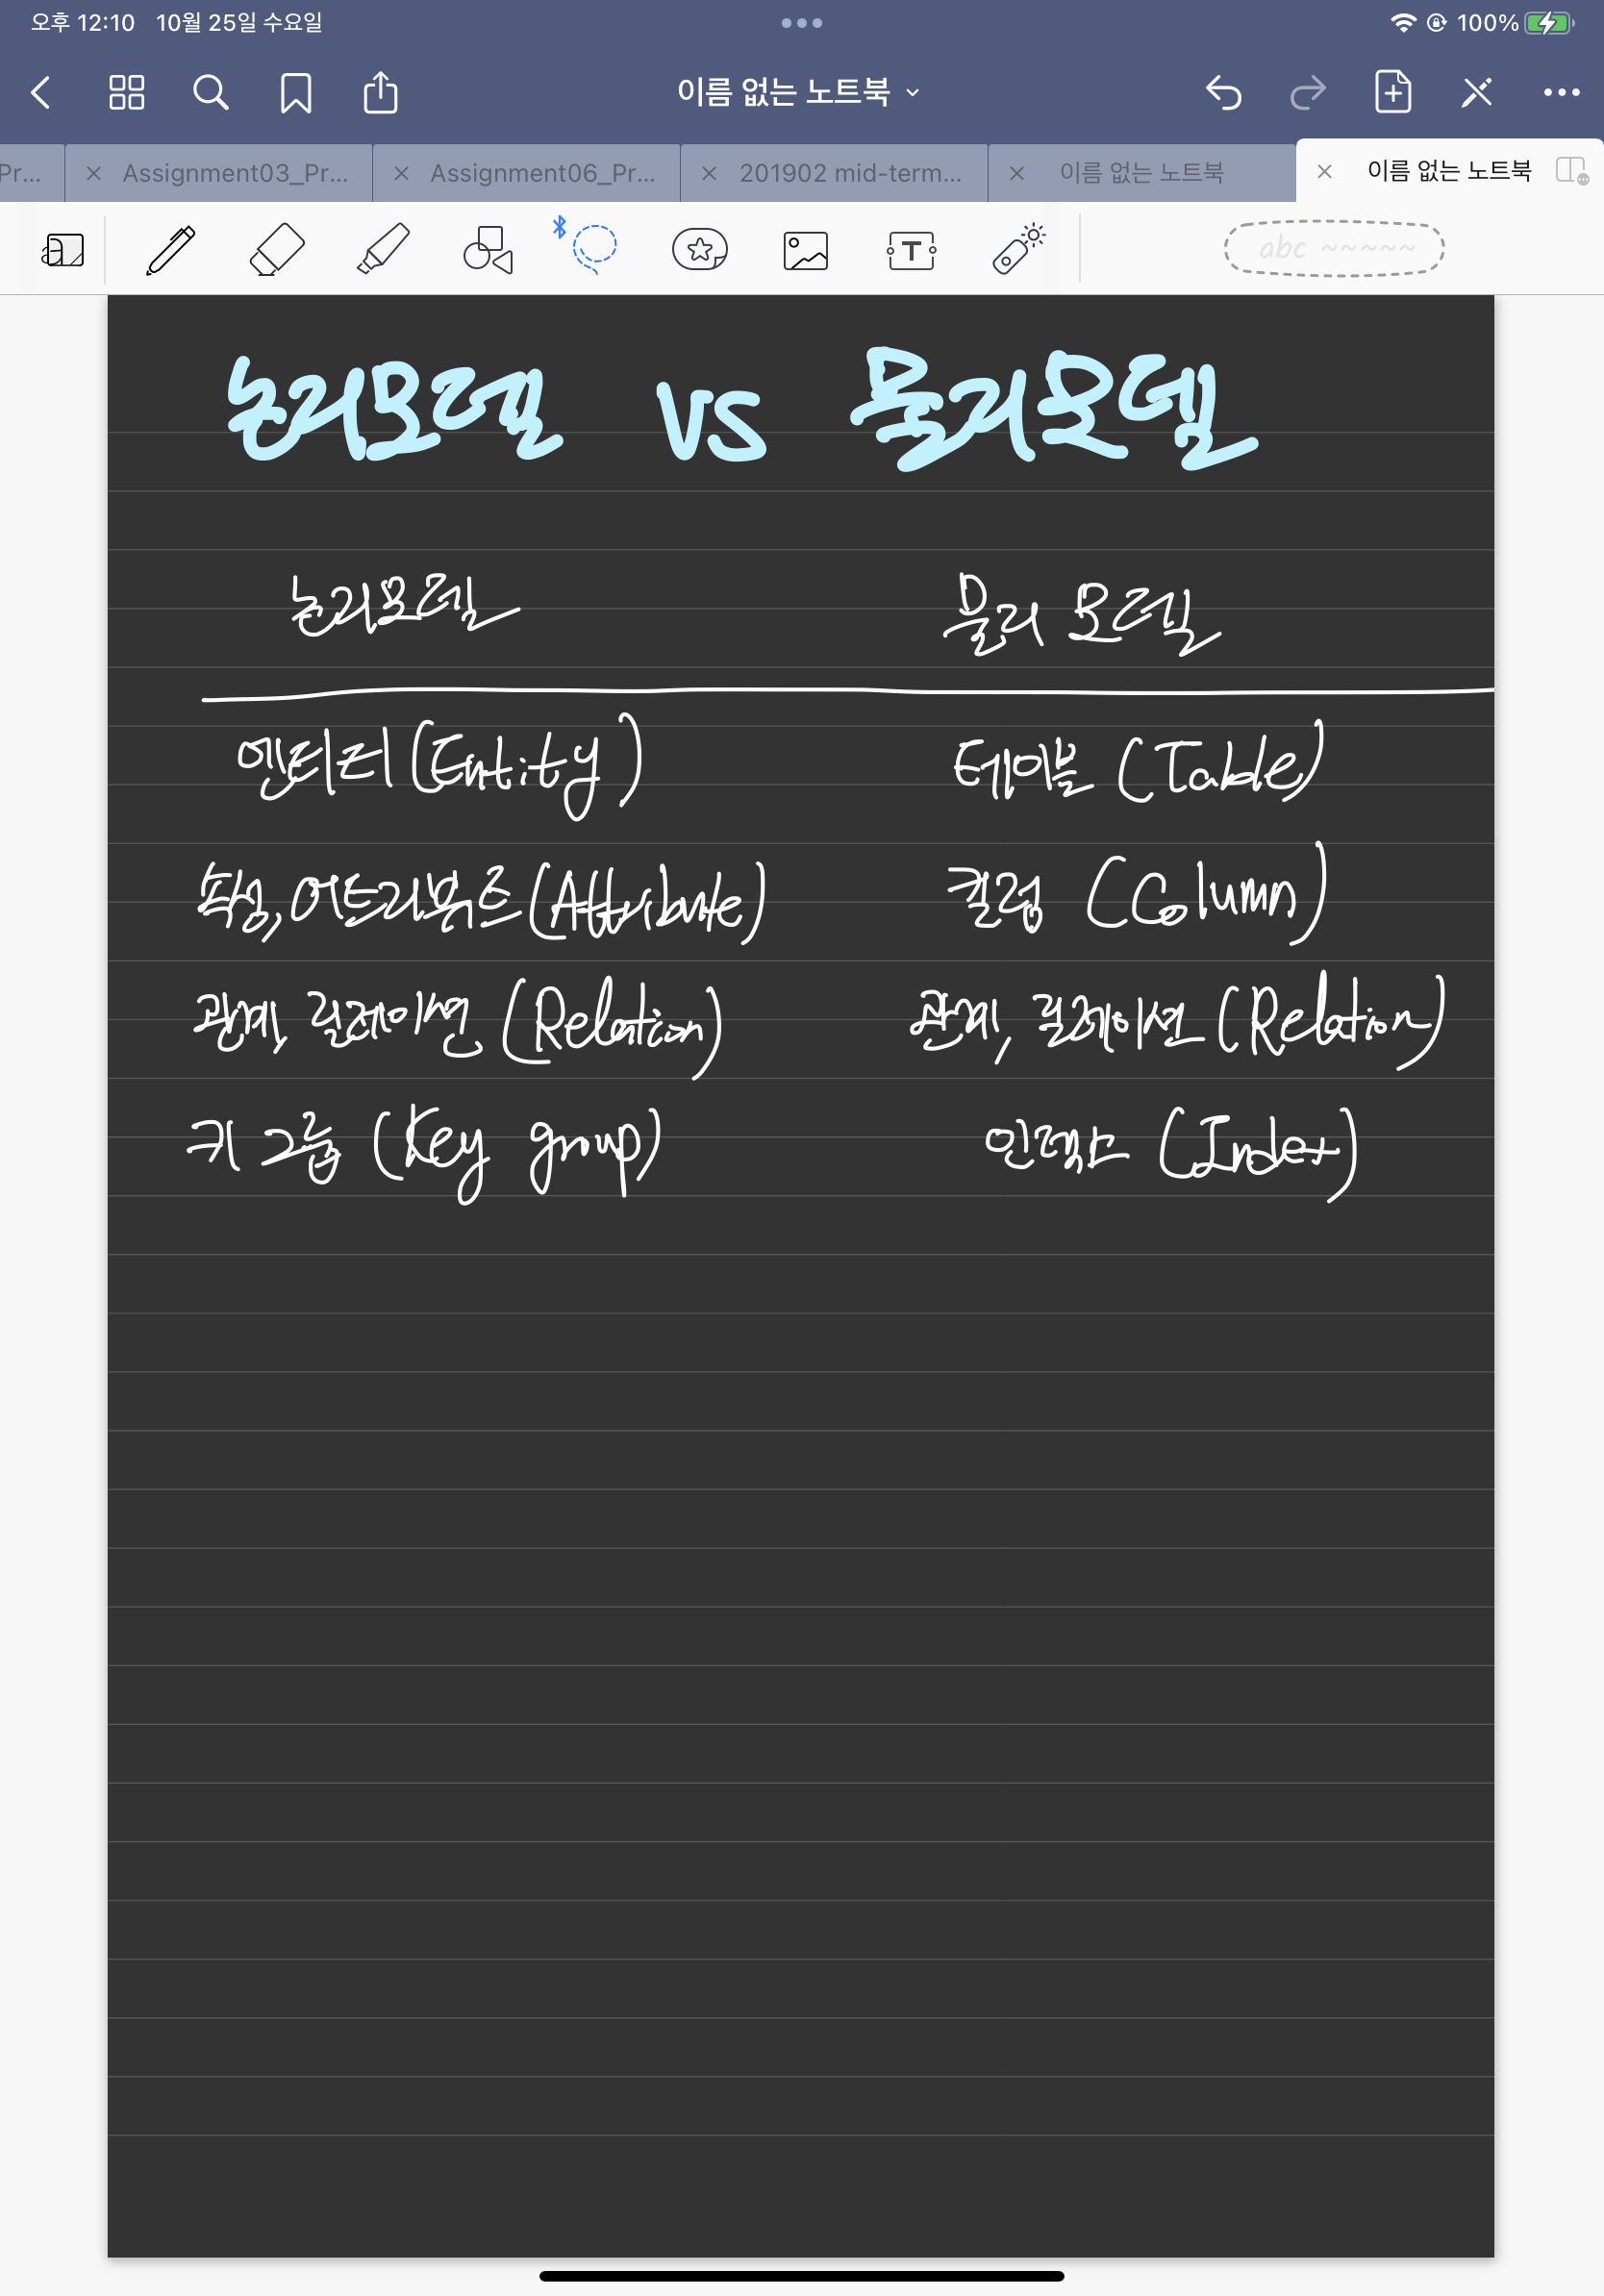 오후 12:10 10월 25일 수요일 100%
이름 없는 노트북
Pr... Assignment03_Pr... Assignment06_Pr... 201902 mid-term... 이름 없는 노트북 이름 없는 노트북
abc ~~~~~
논리모델 vs 물리모델
논리모델 물리 모델
엔티티(Entity) 테이블 (Table)
속성, 어트리뷰트(Attribute) 컬럼 (Column)
관계, 릴레이션 (Relation) 관계, 릴레이션(Relation)
키 그룹 (Key group) 인덱스 (Index)